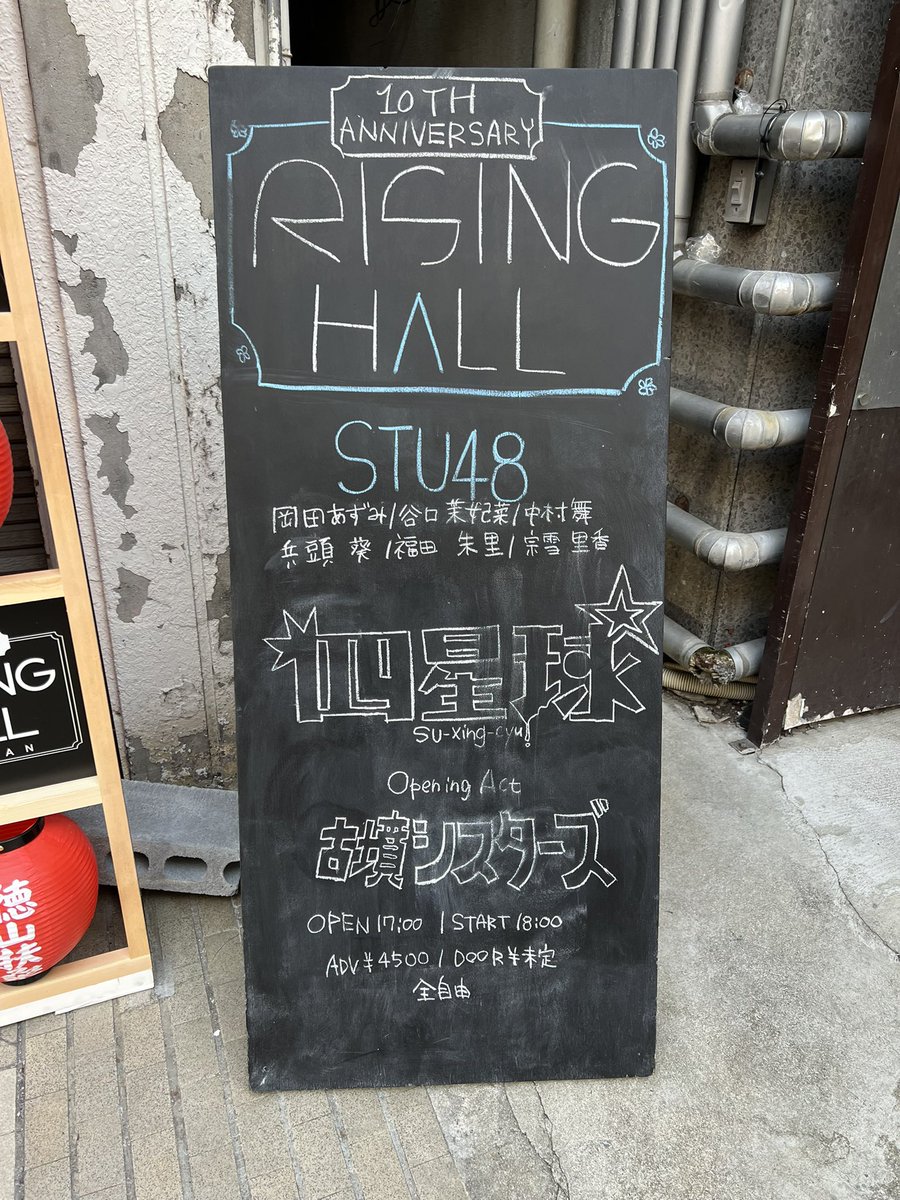 10TH
ANNIVERSARY
RISING
HALL
STU48
岡田あずみ/谷口茉妃菜/中村舞
兵頭 葵/福田 朱里/宗雪里香
四星球
su-xing-cyu
Opening Act
古墳シスターズ
OPEN 17:00 / START 18:00
ADV¥4500/DOOR¥未定
全自由
NG
LL
AN
徳山